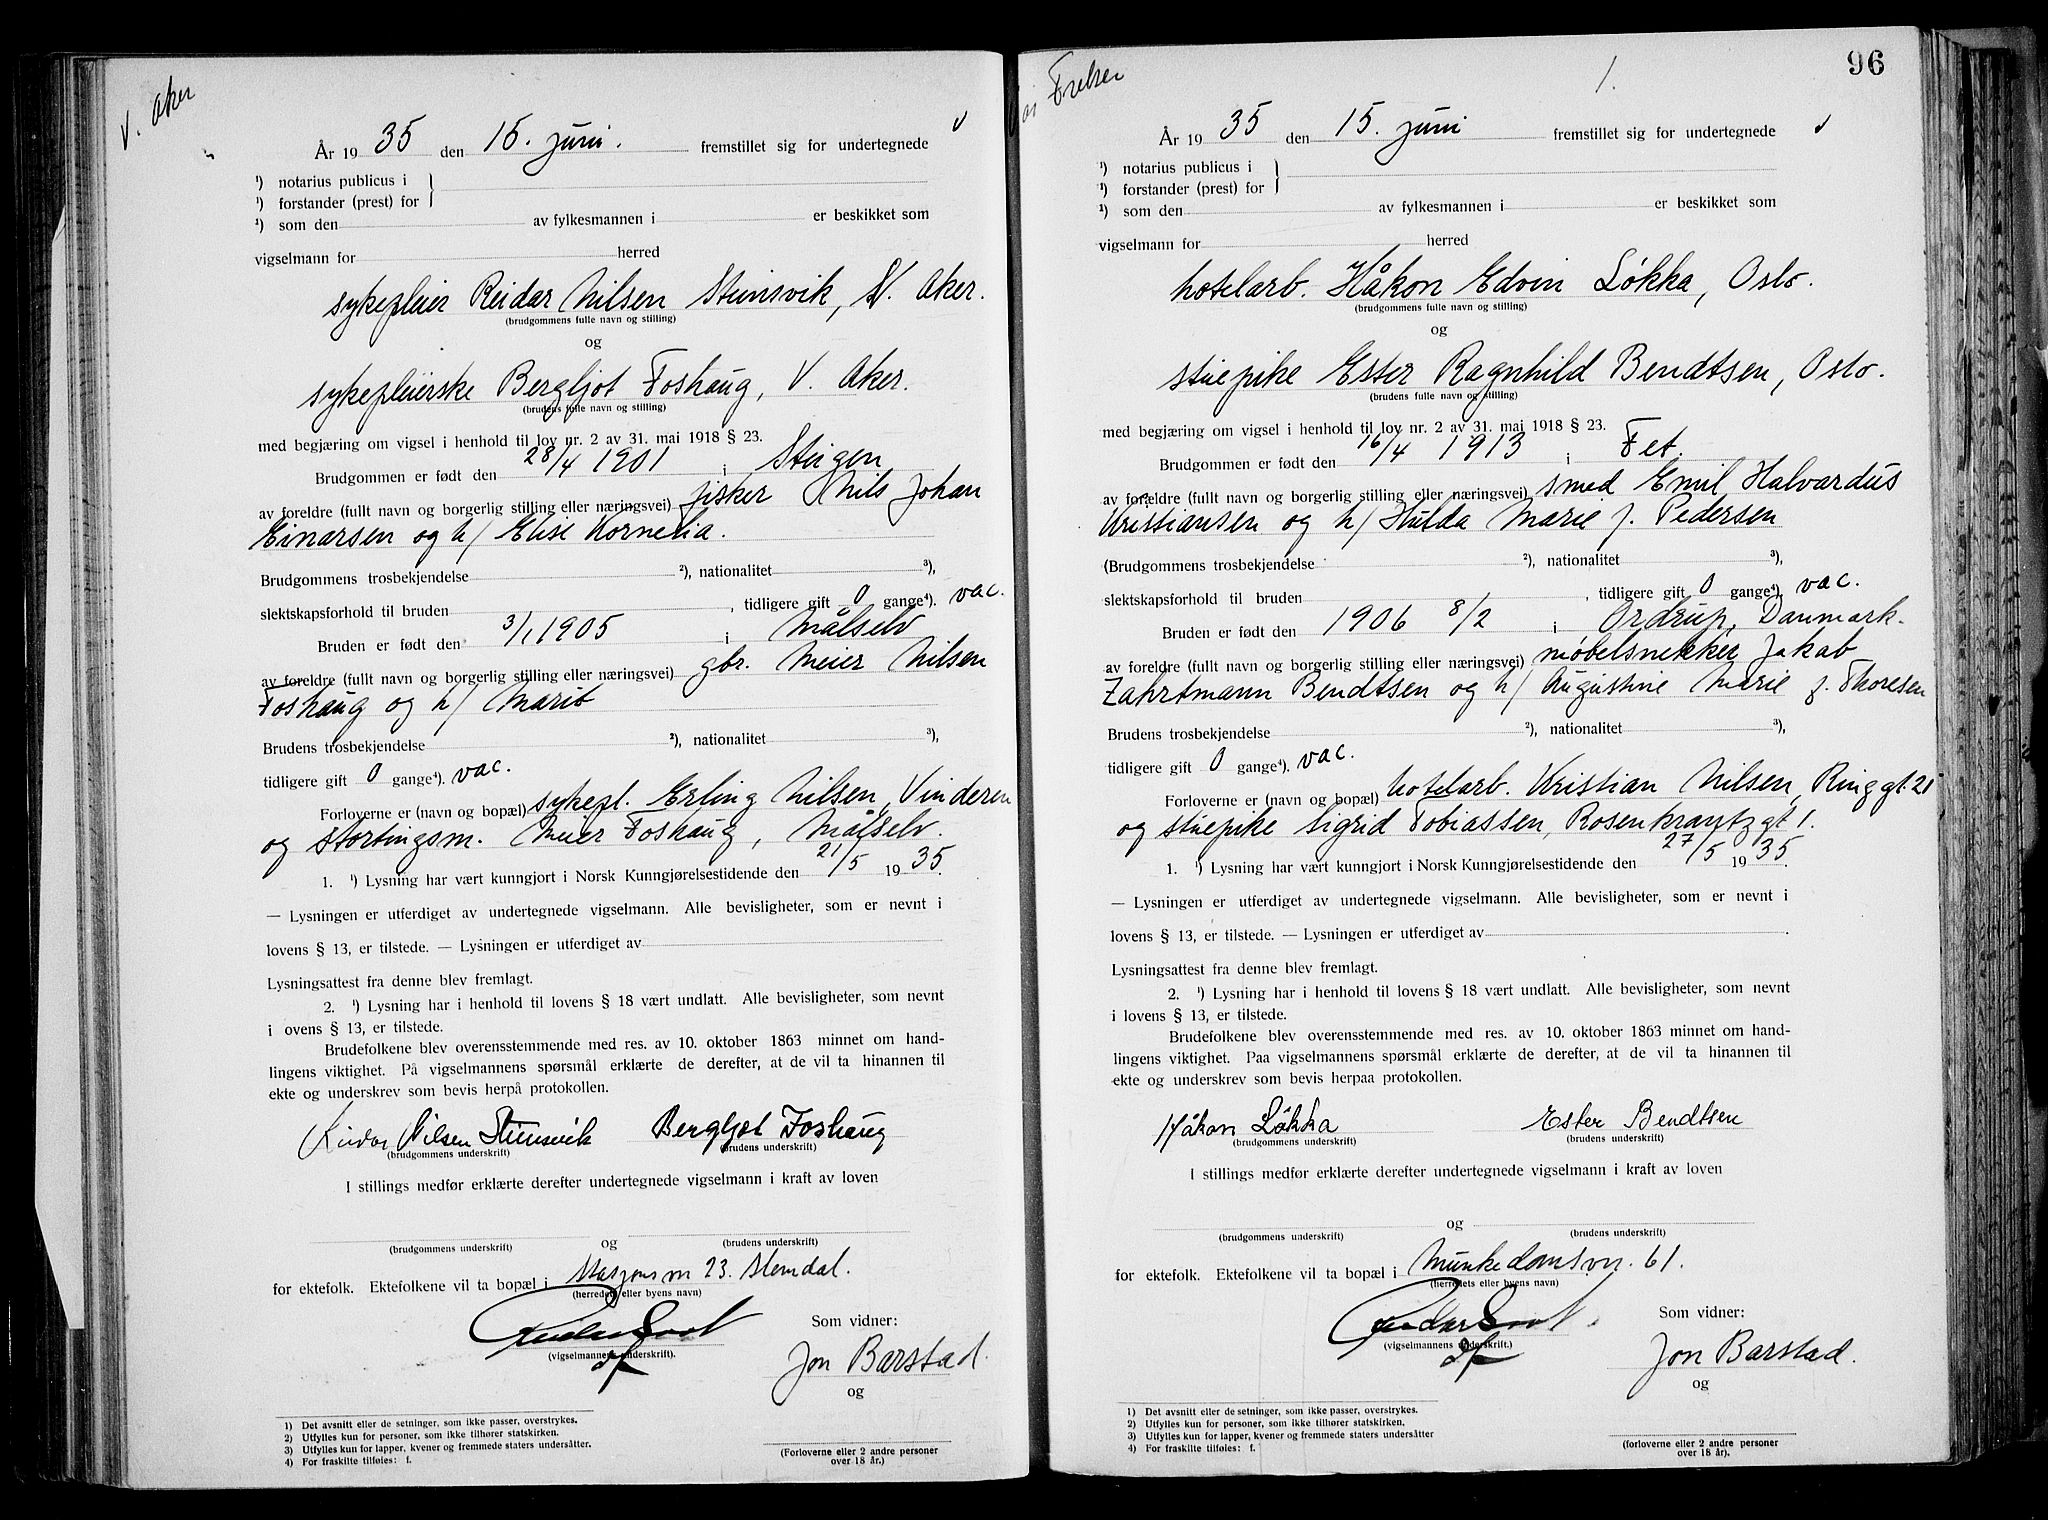 V. Aker
År 19 35 den 15. juni. fremstillet sig for undertegnede
¹) notarius publicus i
¹) forstander (prest) for
¹) som den av fylkesmannen i er beskikket som
vigselmann for herred
sykepleier Reidar Nilsen Steinsvik, V. Aker.
(brudgommens fulle navn og stilling)
og
sykepleierske Bergljot Foshaug, V. Aker.
(brudens fulle navn og stilling)
med begjæring om vigsel i henhold til lov nr. 2 av 31. mai 1918 § 23.
Brudgommen er født den 28/4 1901 i Steigen
av foreldre (fullt navn og borgerlig stilling eller næringsvei) fisker Nils Johan
Einarsen og h/ Elise Kornelia.
Brudgommens trosbekjendelse ²), nationalitet ³),
slektskapsforhold til bruden , tidligere gift 0 gange⁴). vac.
Bruden er født den 3/1 1905 i Målselv
av foreldre (fullt navn og borgerlig stilling eller næringsvei) gbr. Meier Nilsen
Foshaug og h/ Marit
Brudens trosbekjendelse ²), nationalitet ³),
tidligere gift 0 gange⁴). vac.
Forloverne er (navn og bopæl) sykepl. Erling Nilsen, Vinderen
og stortingsm. Meier Foshaug, Målselv.
1. ¹) Lysning har vært kunngjort i Norsk Kunngjørelsestidende den 21/5 1935.
— Lysningen er utferdiget av undertegnede vigselmann. Alle bevisligheter, som er nevnt i
lovens § 13, er tilstede. — Lysningen er utferdiget av
Lysningsattest fra denne blev fremlagt.
2. ¹) Lysning har i henhold til lovens § 18 vært undlatt. Alle bevisligheter, som nevnt
i ovens § 13, er tilstede.
Brudefolkene blev overensstemmende med res. av 10. oktober 1863 minnet om hand-
lingens viktighet. På vigselmannens spørsmål erklærte de derefter, at de vil ta hinannen til
ekte og underskrev som bevis herpå protokollen.
Reidar Nilsen Steinsvik Bergljot Foshaug
(brudgommens underskrift) (brudens underskrift)
I stillings medfør erklærte derefter undertegnede vigselmann i kraft av loven
og
(brudgommens underskrift) (brudens underskrift)
for ektefolk. Ektefolkene vil ta bopæl i Stasjonsvn 23. Slemdal.
(herredets eller byens navn)
Som vidner:
(vigselmannens underskrift).
Jon Barstad.
og
1) Det avsnitt eller de setninger, som ikke passer, overstrykes.
2) Utfylles kun for personer, som ikke tilhører statskirken.
3) Utfylles kun for lapper, kvener og fremmede staters undersåtter.
4) For fraskilte tilføies: f.
(Forloverne eller 2 andre personer
over 18 år.)
Frelser
1.
96
År 19 35 den 15. juni fremstillet sig for undertegnede
¹) notarius publicus i
¹) forstander (prest) for
¹) som den av fylkesmannen i er beskikket som
vigselmann for herred
hotelarb. Håkon Edvin Løkka, Oslo.
(brudgommens fulle navn og stilling)
og
stuepike Ester Ragnhild Bendtsen, Oslo.
(brudens fulle navn og stilling)
med begjæring om vigsel i henhold til lov nr. 2 av 31. mai 1918 § 23.
Brudgommen er født den 16/4 1913 i Fet.
av foreldre (fullt navn og borgerlig stilling eller næringsvei) smed Emil Halvardus
Kristiansen og h/ Hulda Marie f. Pedersen
(Brudgommens trosbekjendelse ²), nationalitet ³),
slektskapsforhold til bruden , tidligere gift 0 gange⁴). vac.
Bruden er født den 1906 8/2 i Ordrup, Danmark.
av foreldre (fullt navn og borgerlig stilling eller næringsvei) møbelsnekker Jakab
Zahrtmann Bendtsen og h/ Augustine Marie f. Thoresen
Brudens trosbekjendelse ²), nationalitet ³),
tidligere gift 0 gange⁴). vac.
Forloverne er (navn og bopæl) hotelarb. Kristian Nilsen, Ringgt. 21
og stuepike Sigrid Tobiassen, Rosenkrantzgt 1.
1. ¹) Lysning har vært kunngjort i Norsk Kunngjørelsestidende den 27/5 1935.
— Lysningen er utferdiget av undertegnede vigselmann. Alle bevisligheter, som er nevnt i
lovens § 13, er tilstede. — Lysningen er utferdiget av
Lysningsattest fra denne blev fremlagt.
2. ¹) Lysning har i henhold til lovens § 18 vært undlatt. Alle bevisligheter, som nevnt
i lovens § 13, er tilstede.
Brudefolkene blev overensstemmende med res. av 10. oktober 1863 minnet om hand-
lingens viktighet. Paa vigselmannens spørsmål erklærte de derefter, at de vil ta hinannen til
ekte og underskrev som bevis herpaa protokollen.
Håkon Løkka Ester Bendtsen
(brudgommens underskrift) (brudens underskrift)
I stillings medfør erklærte derefter undertegnede vigselmann i kraft av loven
og
(brudgommens underskrift) (brudens underskrift)
for ektefolk. Ektefolkene vil ta bopæl i Munkedamsvn. 61.
(herredets eller byens navn)
Som vidner:
(vigselmannens underskrift).
Jon Barstad.
og
1) Det avsnitt eller de setninger, som ikke passer, overstrykes.
2) Utfylles kun for personer, som ikke tilhører statskirken.
3) Utfylles kun for lapper, kvener og fremmede staters undersåtter
4) For fraskilte tilføles: f.
(forloverne eller 2 andre personer
over 18 år).